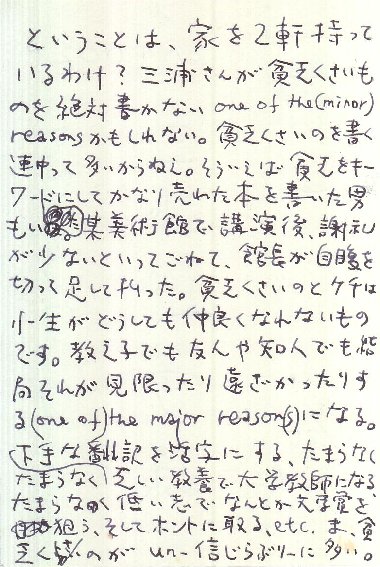 ということは、家を2軒持って
いるわけ？三浦さんが貧乏くさいも
のを絶対書かない one of the (minor)
reasonsかもしれない。貧乏くさいのを書く
連中って多いからねえ。そういえば貧乏をキー
ワードにしてかなり売れた本を書いた男
もいる。某美術館で講演後、謝礼
が少ないといってごねて、館長が自腹を
切って足して払った。貧乏くさいのとケチは
小生がどうしても仲良くなれないもの
です。教え子でも友人や知人でも結
局それが見限ったり遠ざかったりす
る(one of) the major reason(s)になる。
下手な翻記を活字にする、たまらなく
たまらなく乏しい教養で大学教師になる、
たまらなく低い志でなんとか文学賞を
狙う、そしてホントに取る、etc. ま、貧
乏くさいのがun-信じらぶりーに多い。